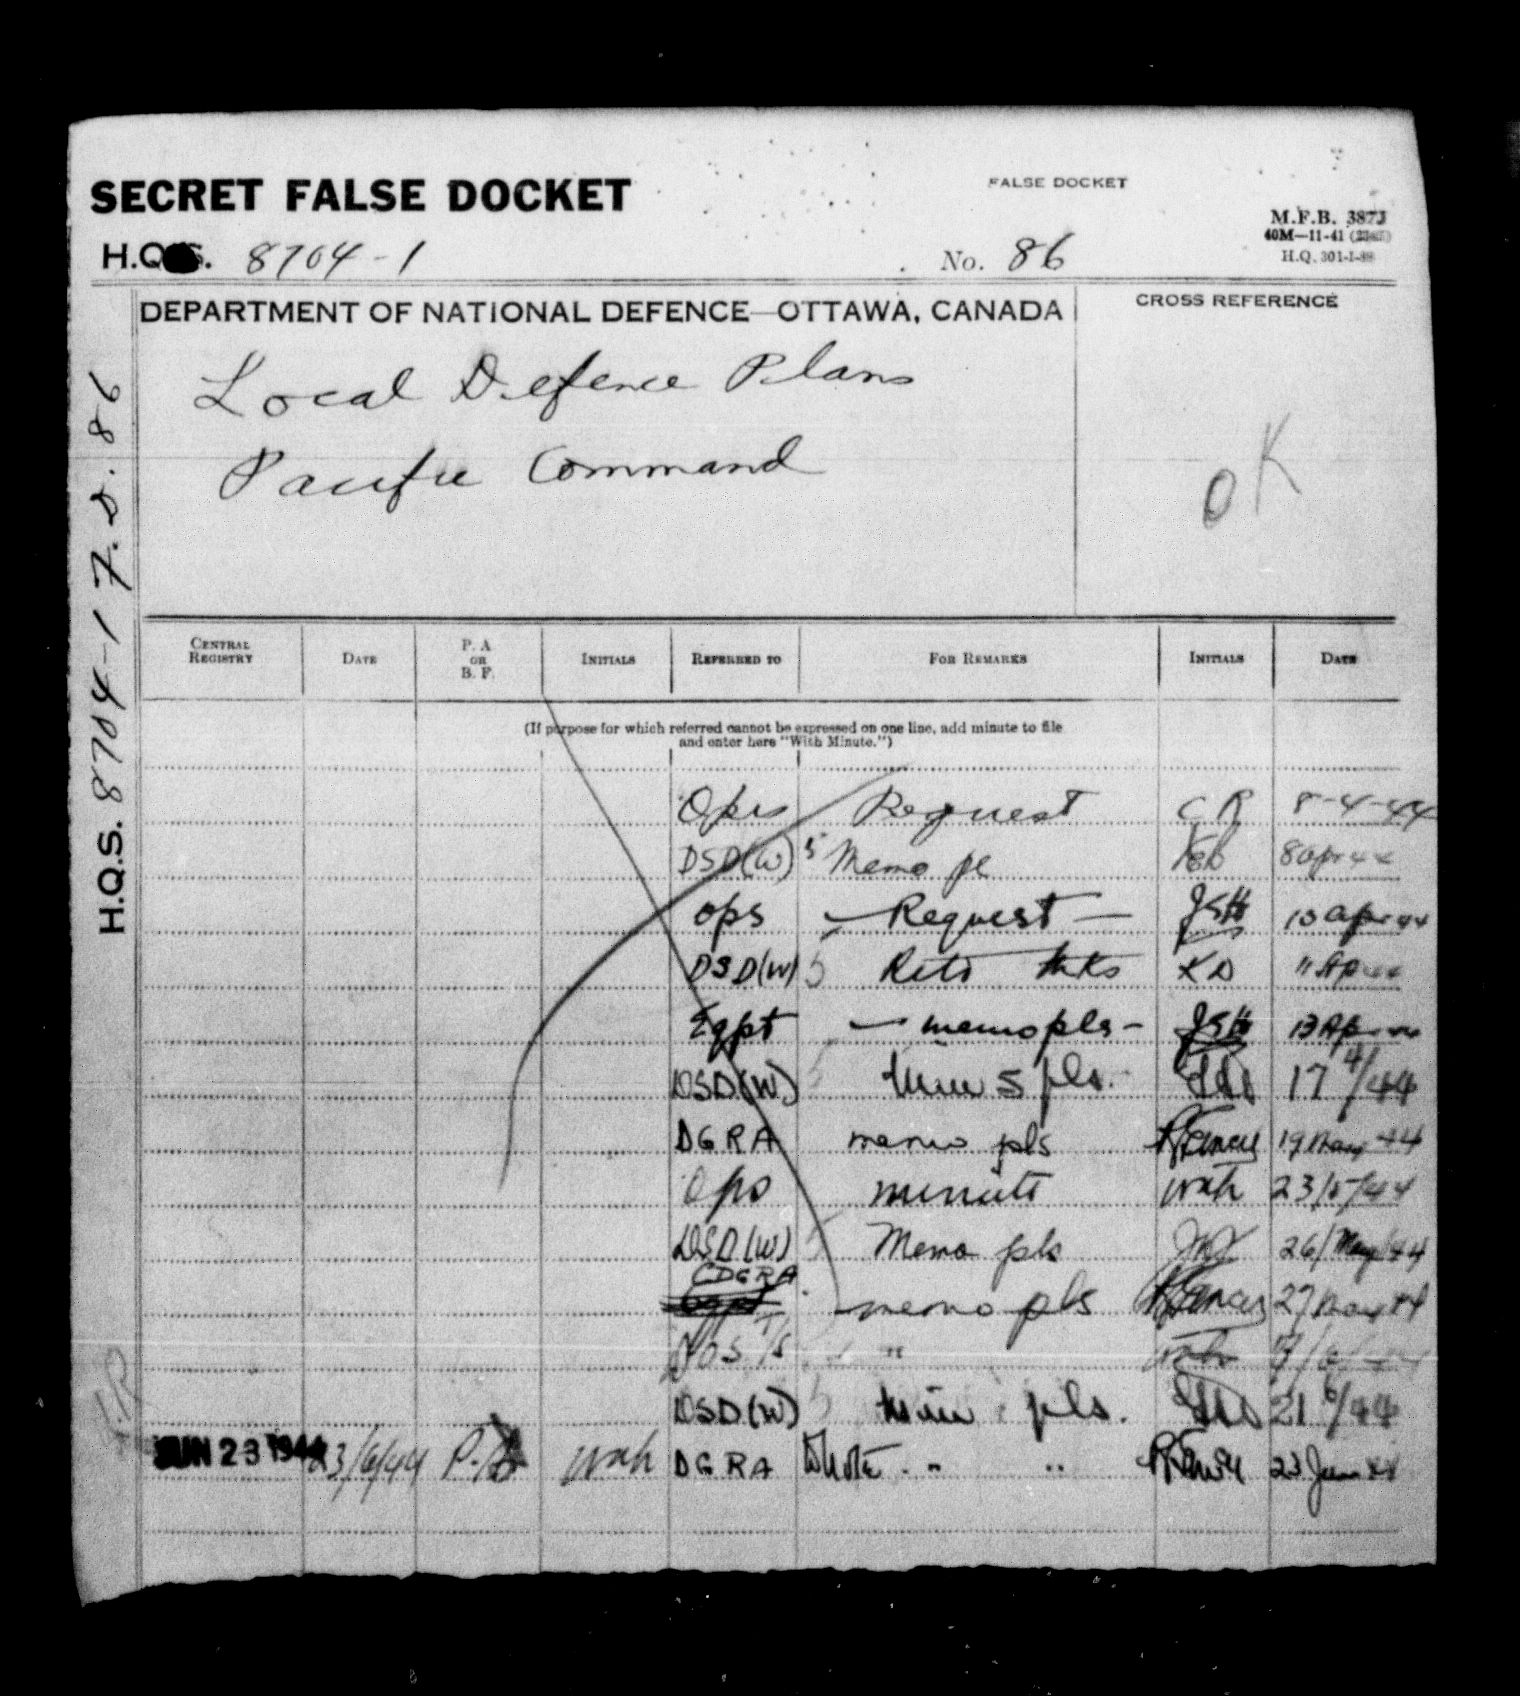 SECRET FALSE DOCKET
FALSE DOCKET
M.F.B. 387J
40M—11-41
H.Q. 301-1-88
H.Q.S. 8704-1
No. 86
DEPARTMENT OF NATIONAL DEFENCE—OTTAWA, CANADA
CROSS REFERENCE
Local Defence Plans
Pacific Command
OK
H.Q.S. 8704-1 F.D. 86
CENTRAL REGISTRY DATE P. A OR B. F. INITIALS REFERRED TO FOR REMARKS INITIALS DATE
(If purpose for which referred cannot be expressed on one line, add minute to file
and enter here "With Minute.")
Ops Request CR 8-4-44
DSD(W) 5 Memo pl 8 Apr 44
Ops Request — JSH 10 Apr 44
DSD(W) 5 KD 11 Ap 44
Eqpt — memo pls — JSH 13 Ap
DSD(W) 5 pls. 17/4/44
DGRA memo pls 19 May 44
Ops minute wah 23/5/44
DSD(W) 5 Memo pls 26/May/44
DGRA
memo pls 27 May 44
DSD(W) 5 pls. 21/6/44
JUN 23 1944 23/6/44 P.A wah DGRA " " 23 Jun 44